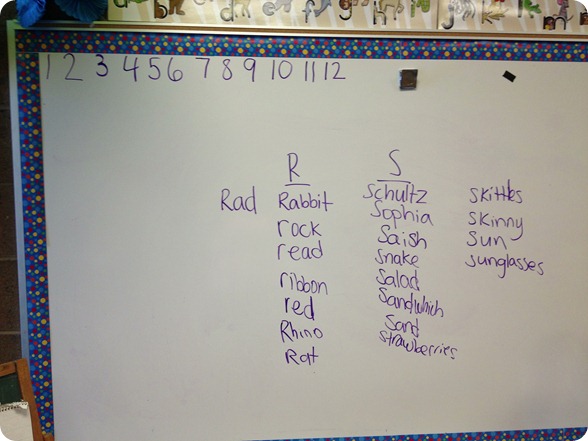 1 2 3 4 5 6 7 8 9 10 11 12
R S
Rad Rabbit Schultz Skittles
rock Sophia Skinny
read Saish Sun
snake sunglasses
ribbon Salad
red Sandwhich
Rhino Sand
Rat strawberries